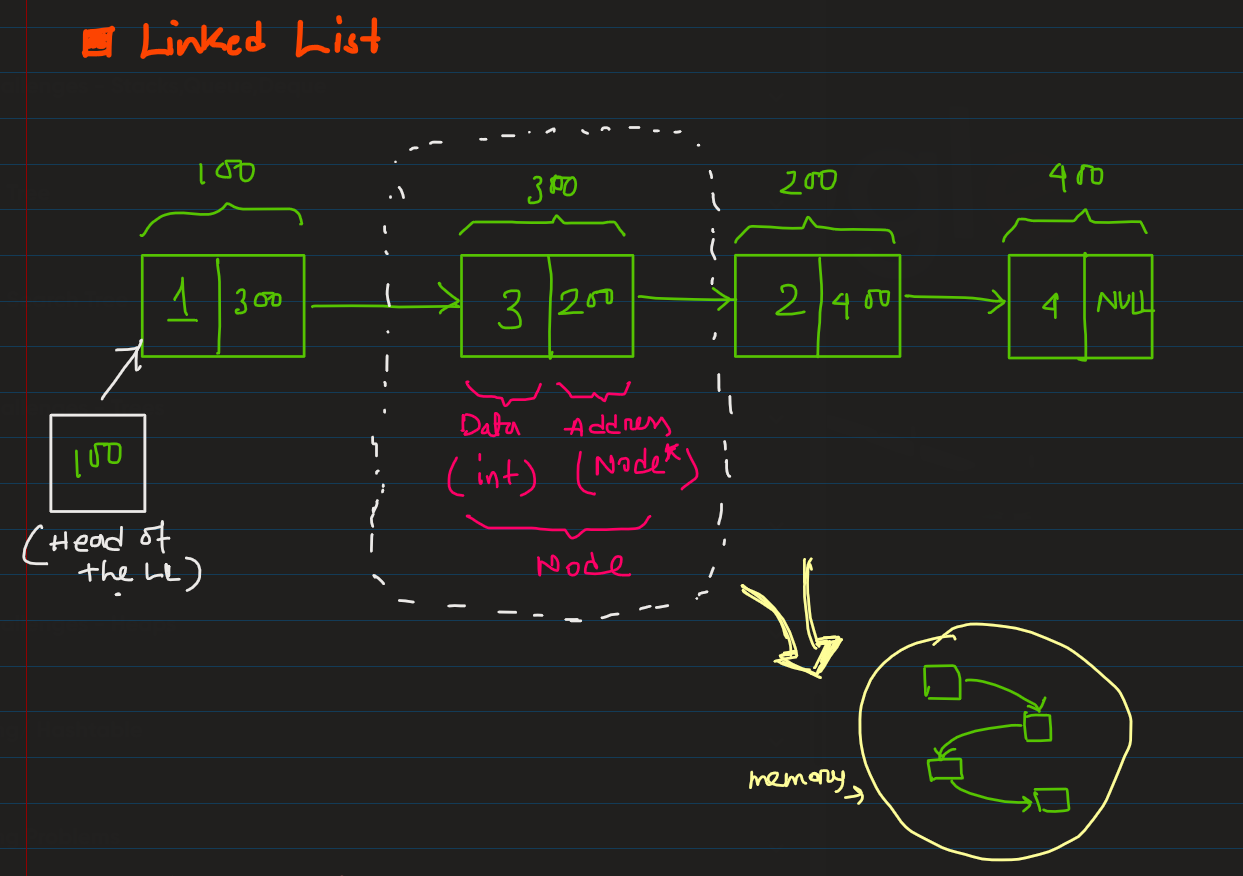 Linked List
100
300
200
400
1 300
3 200
2 400
4 NULL
100
(Head of
the LL)
Data Address
(int) (Node*)
Node
memory